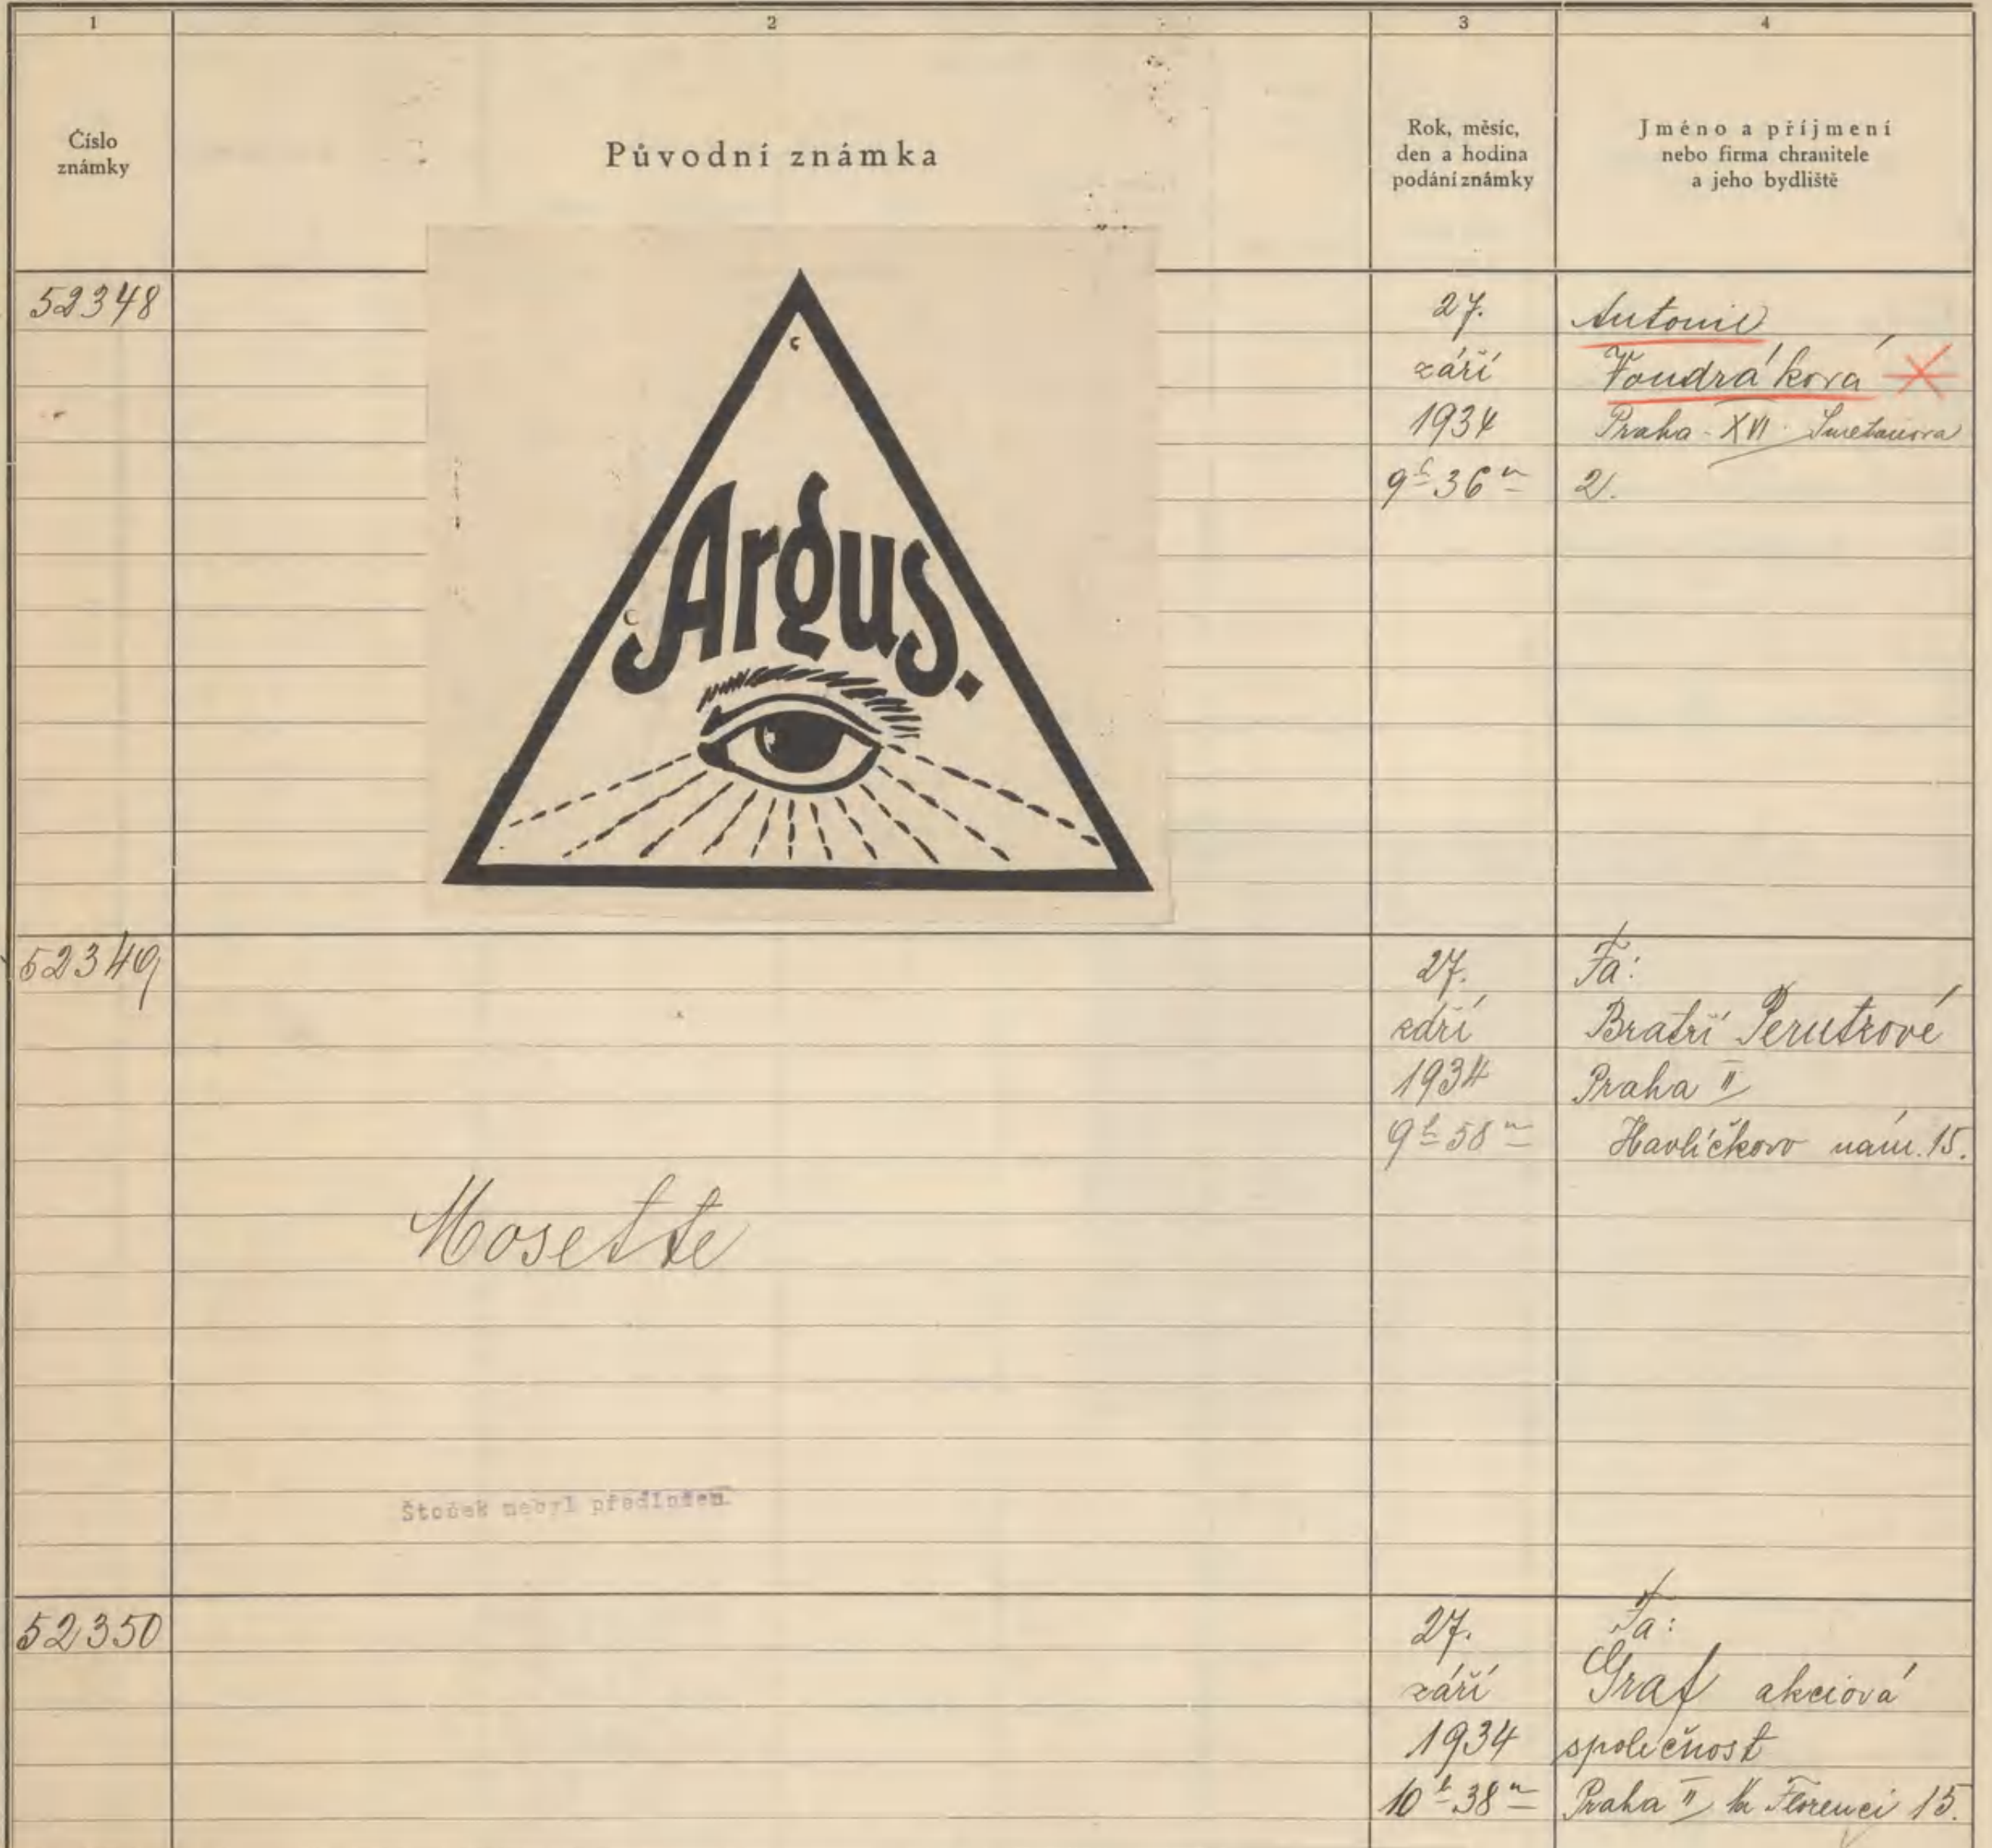 1
2
3
4
Číslo
známky
Původní známka
Rok, měsíc,
den a hodina
podání známky
Jméno a příjmení
nebo firma chranitele
a jeho bydliště
52348
Argus.
27.
září
1934
9h 36m
Antonie
Foudráková
Praha - XVI Smetanova
2.
52349
Mosette
Štoček nebyl předložen.
27.
září
1934
9h 58m
Fa:
Bratří Perutzové
Praha II
Havlíčkovo nám. 15.
52350
27.
září
1934
10h 38m
Fa:
Graf akciová
společnost
Praha II Na Florenci 15.